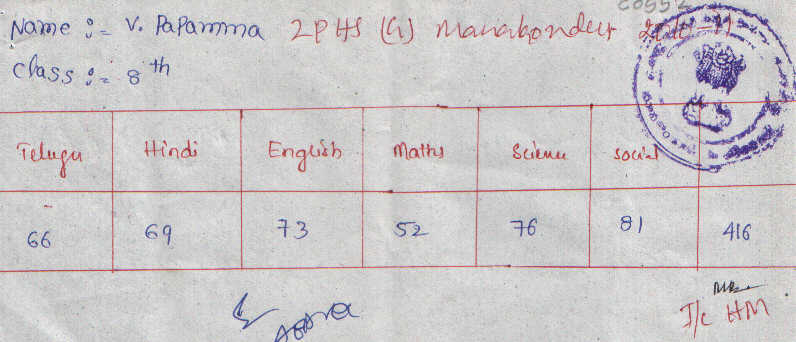 Name :- V. Papamma ZPHS (G)
Class :- 8th
Telugu Hindi English Maths Science Social
66 69 73 52 76 81 416
I/c HM